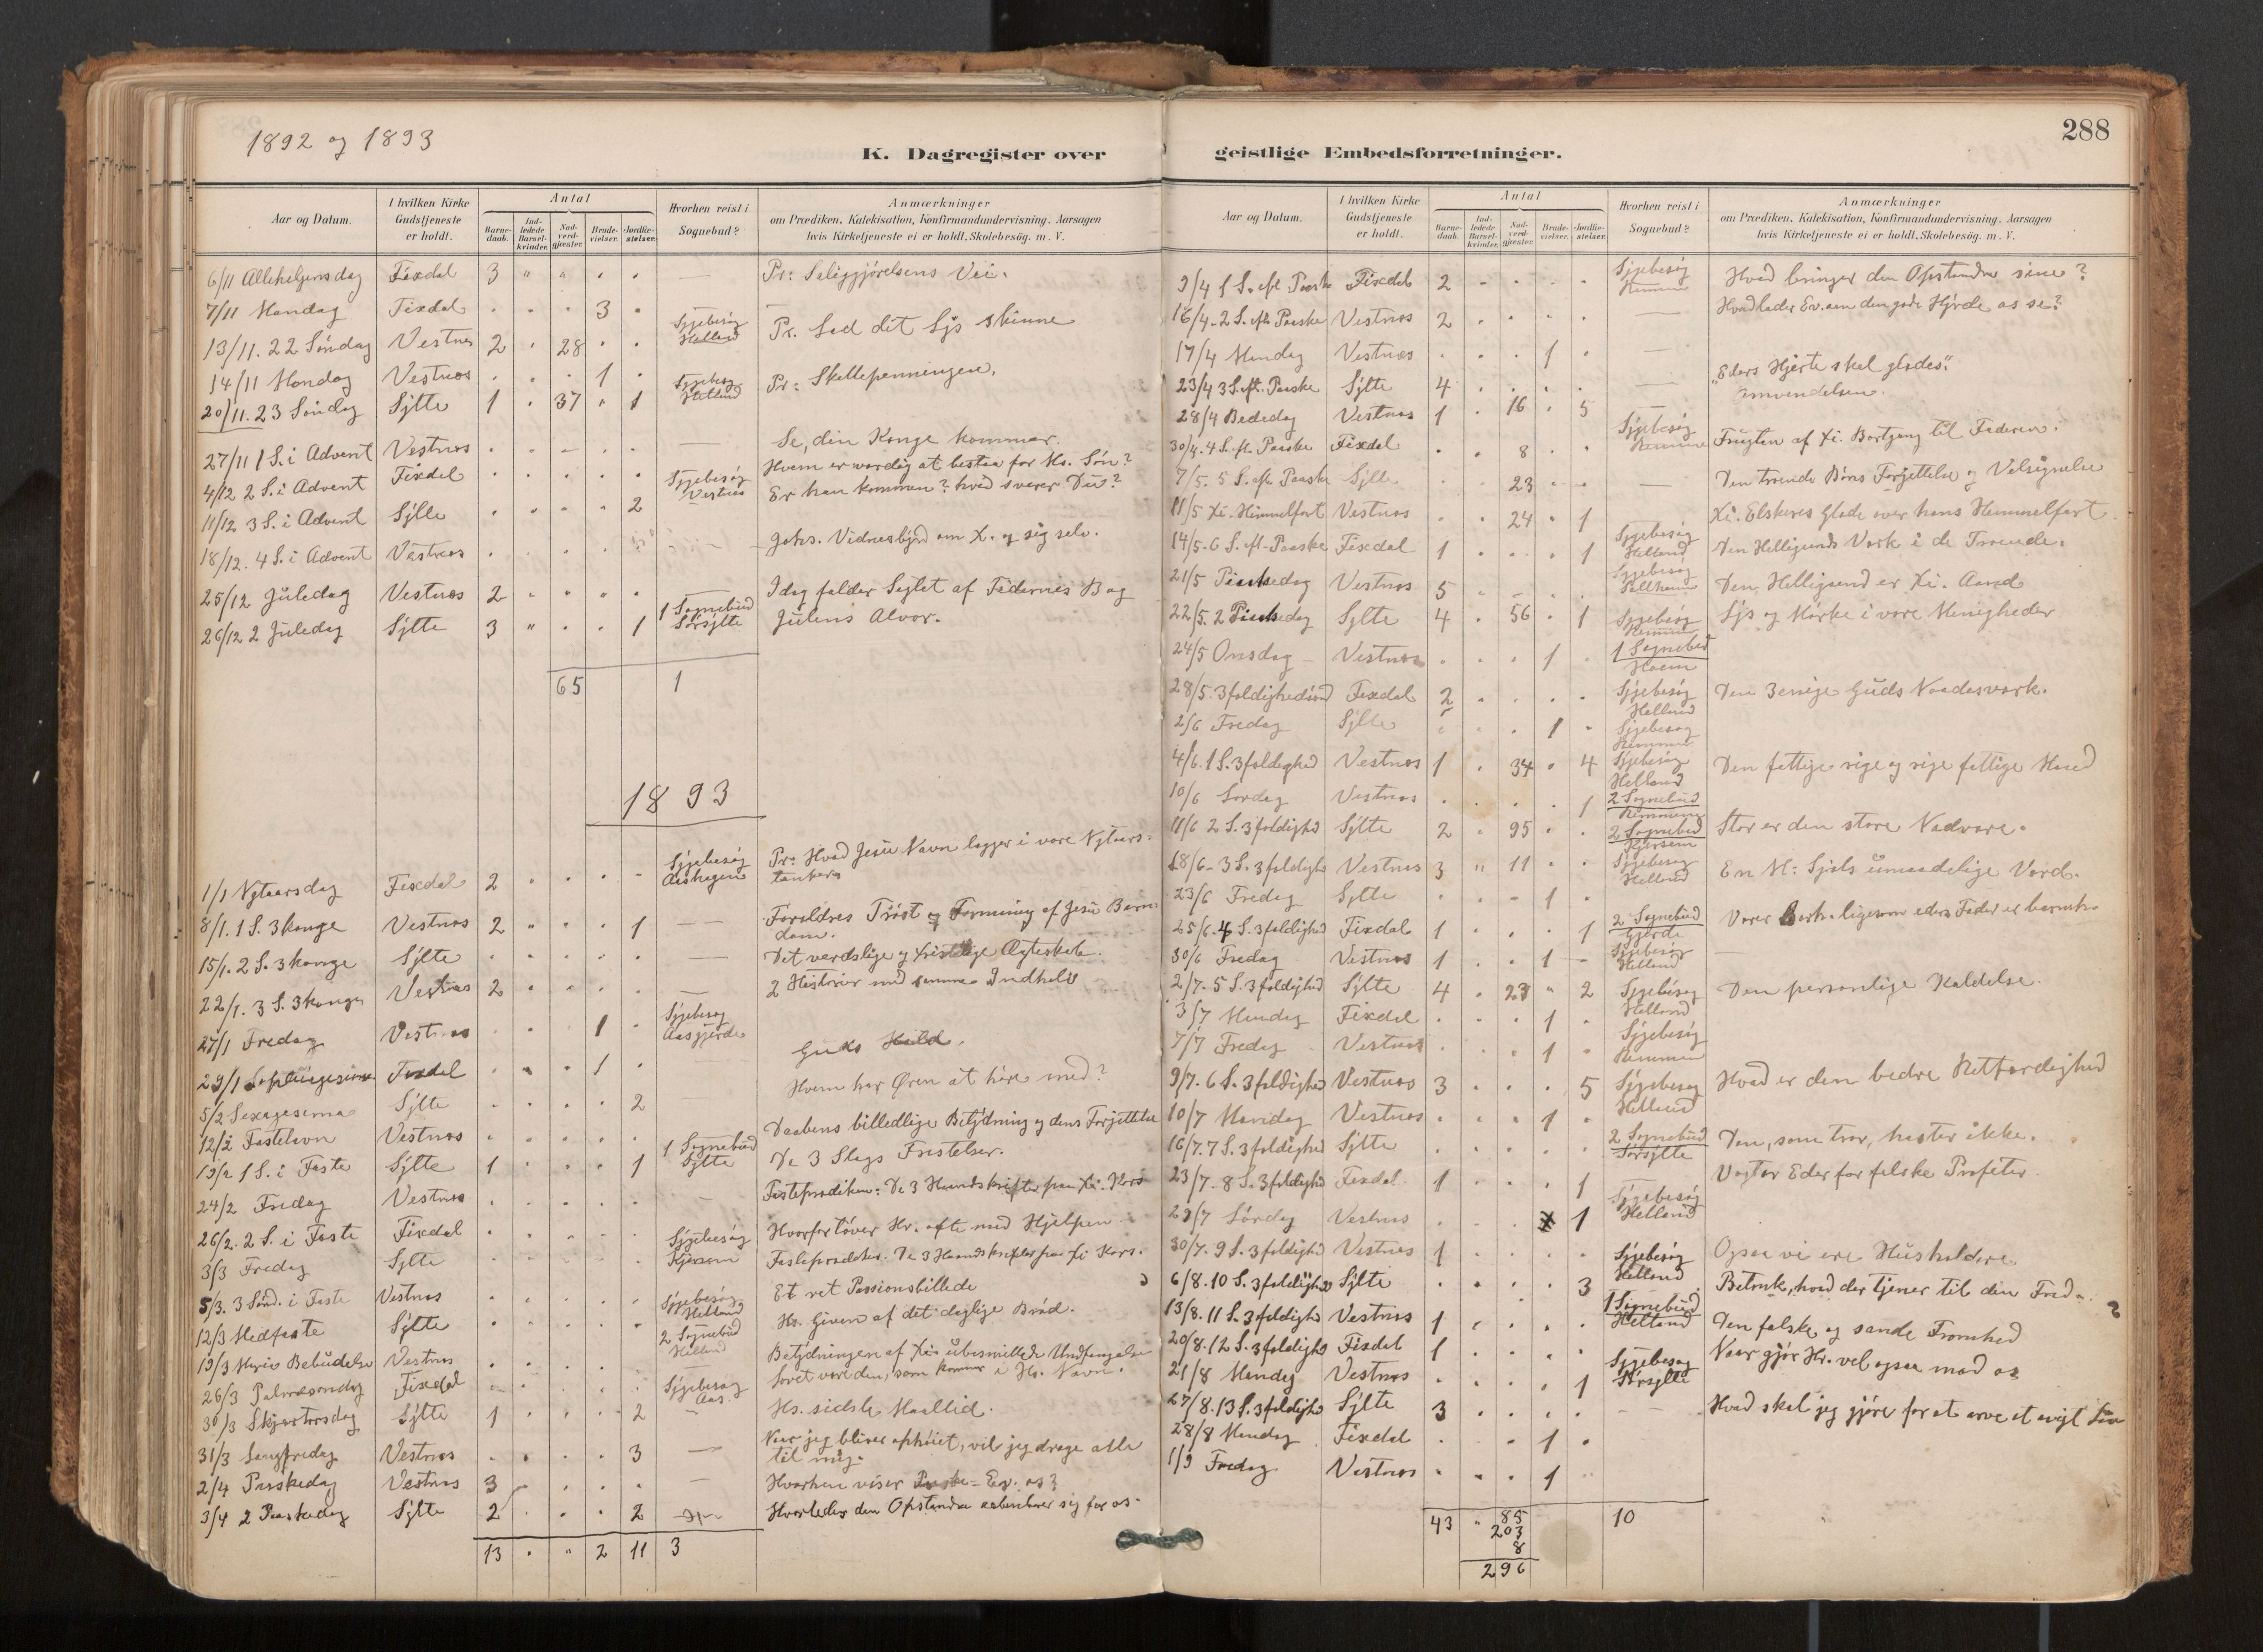 1892 og 1893
288
K. Dagregister over geistlige Embedsforretninger.
Aar og Datum. | I hvilken Kirke Gudstjeneste er holdt. | Antal | Barne-daab. | Ind-ledede Barsel-kvinder. | Nad-verd-gjester. | Brude-vielser. | Jordfæ-stelser. | Hvorhen reist i Sognebud? | Anmærkninger om Prædiken, Katekisation, Konfirmandundervisning. Aarsagen hvis Kirketjeneste ei er holdt. Skolebesög. m. V.
6/11 Allehelgensdag Fixdal 3 " " . . — Pr: Saliggjørelsens Vei.
7/11 Mandag Fixdal . . . 3 . —
13/11. 22 Søndag Vestnes 2 . 28 . . Sygebesøg Helland Pr. Lad dit Lys skinne
14/11 Mandag Vestnæs . . . 1 .
20/11. 23 Søndag Sylte 1 . 37 . 1 Sygebesøg Helland Pr: Skattepenningen.
27/11 1 S. i Advent Vestnæs . . . . . — Se, din Konge kommer.
4/12 2 S. i Advent Fixdal . . . . . Hvem er værdig at bestaa for Ms. Søn?
11/12 3 S. i Advent Sylte . . . . 2 Sygebesøg Vestnæs Er han kommen? hvad svarer Du?
18/12. 4 S. i Advent Vestnæs . . . . — Johs. Vidnesbyrd om X. og sig selv.
25/12 Juledag Vestnæs 2 . . . . — Idag falder Sløret af Fædernes Bog
26/12 2 Juledag Sylte 3 " . . 1 1 Sognebud Sørsylte Julens Alvor.
65 1
1893
1/1 Nytaarsdag Fixdal 2 . . . . Sygebesøg Aashagen Pr: Hvad Jesu Navn lægger i vore Nytaars-
tanker
8/1. 1 S. 3konge Vestnæs 2 " . . 1 — Forældres Trøst og Formaning af Jesu Barn-
dom.
15/1. 2 S. 3konge Sylte . . . . . — Det verdslige og kristelige Ægteskab.
22/1. 3 S. 3konger Vestnæs 2 . . . . — 2 Historier med samme Indhold
27/1 Fredag Vestnæs . . . 1 . Sygebesøg Aasgjerde
29/1 Septuagesima Fixdal . . . 1 . Guds
5/2 Sexagesima Sylte . . . . 2 — Hvem har Øren at høre med?
12/2 Fastelavn Vestnæs . . . . . Daabens billedlige Betydning og dens Forjættelse
19/2 1 S. i Faste Sylte 1 . . . 1 1 Sognebud Sylte De 3 Slags Fristelser.
24/2 Fredag Vestnæs . . . . . — Fasteprædiken: De 3 Haandskrifter paa Xi. Kors
26/2. 2 S. i Faste Fixdal . . . . . Hvorfor tøver Hr. ofte med Hjelpen
3/3 Fredag Sylte . . . . . Sygebesøg Kjersem Fasteprædiken. De 3 Haandskrifter paa Xi Kors.
5/3. 3 Sønd. i Faste Vestnæs . . . . . Et ret Passionsbillede
12/3 Midfaste Sylte . . . . . Sygebesøg Helland Hs. Given af det daglige Brød.
19/3 Mariæ Bebudelse Vestnæs . . . . . 2 Sognebud Helland Betydningen af Xi. ubesmittede Undfangelse
26/3 Palmesøndag Fixdal . . . . . Sygebesøg Aas Lovet være den, som kommer i Hs. Navn.
30/3 Skjærtorsdag Sylte 1 . . . 2 Hs. sidste Maaltid.
31/3 Langfredag Vestnæs . . . . 3 — Naar jeg bliver ophøiet, vil jeg drage alle
til mig.
2/4 Paaskedag Vestnæs 3 . . . . — Hvorhen viser Paaske-Ev. os?
3/4 2 Paaskedag Sylte 2 . . . 2 Hvorledes den Opstandne aabenbarer sig for os.
13 . " 2 11 3
Aar og Datum. | I hvilken Kirke Gudstjeneste er holdt. | Antal | Barne-daab. | Ind-ledede Barsel-kvinder. | Nad-verd-gjester. | Brude-vielser. | Jordfæ-stelser. | Hvorhen reist i Sognebud? | Anmærkninger om Prædiken, Katekisation, Konfirmandundervisning. Aarsagen hvis Kirketjeneste ei er holdt. Skolebesög. m. V.
9/4 1 S. eft. Paaske Fixdal 2 . . . . Sygebesøg Remmem Hvad bringer den Opstandne sine?
16/4. 2 S. eft. Paaske Vestnæs 2 . . . . — Hvad lader Ev. om den gode Hyrde os se?
17/4 Mandag Vestnæs . . . 1 . —
23/4 3 S. eft. Paaske Sylte 4 . . . . — "Eders Hjerte skal glædes."
28/4 Bededag Vestnæs 1 . 16 . 5 — Omvendelsen.
30/4. 4 S. eft. Paaske Fixdal . . 8 . . Sygebesøg Remmem Frugten af Xi. Bortgang til Faderen.
7/5. 5 S. eft. Paaske Sylte . . 23 . . — Den troende Bøns Forjættelse og Velsignelse
11/5 Xi. Himmelfart Vestnæs . . 24 . 1 Xi. Elskeres Glæde over hans Himmelfart
14/5. 6 S. eft. Paaske Fixdal 1 . . . 1 Sygebesøg Helland Den Helligaands Værk i de Troende.
21/5 Pinsedag Vestnæs 5 . . . . Sygebesøg Den Helligaand er Xi. Aand
22/5. 2 Pinsedag Sylte 4 . 56 . 1 Sygebesøg Remmem Lys og Mørke i vore Menigheder
24/5 Onsdag Vestnæs . . . 1 . 1 Sognebud Hoem
28/5. 3foldighedssønd Fixdal 2 . . . . Sygebesøg Helland Den 3enige Guds Naadesværk.
2/6 Fredag Sylte . . . 1 . Sygebesøg Remmem
4/6. 1 S. 3foldighed Vestnæs 1 . 34 . 4 Sygebesøg Helland Den fattige rige og rige fattige Mand
10/6 Lørdag Vestnæs . . . . 1 2 Sognebud Remmem
11/6 2 S. 3foldighd Sylte 2 . 95 . . 2 Sognebud Kjersem Stor er den store Nadvere.
18/6. 3 S. 3foldighd Vestnæs 3 " 11 . . Sygebesøg Helland En M: Sjæls umaadelige Værd.
23/6 Fredag Sylte . . . 1 .
25/6. 4 S. 3foldighed Fixdal 1 . . . 1 2 Sognebud Gjerde Værer barmh. ligesom eders Fader er barmh.
30/6 Fredag Vestnæs 1 . . 1 . Sygebesøg Helland —
2/7. 5 S. 3foldighed Sylte 4 . 23 " 2 Sygebesøg Helland Den personlige Kaldelse.
3/7 Mandag Fixdal . . . 1 .
7/7 Fredag Vestnæs . . . 1 . Sygebesøg Remmem
9/7. 6 S. 3foldighed Vestnæs 3 . . . 5 Sygebesøg Helland Hvad er den bedre Retfærdighed
10/7 Mandag Vestnæs . . . 1 .
16/7. 7 S. 3foldighed Sylte . . . . . 2 Sognebud Sørsylte Den, som tror, haster ikke.
23/7. 8 S. 3foldighd Fixdal 1 . . . 1 Vogter Eder for falske Profeter
29/7 Lørdag Vestnæs . . . 1 Sygebesøg Helland
30/7. 9 S. 3foldighd Vestnæs 1 . . . . Sygebesøg Helland Ogsaa vi ere Husholdere
6/8. 10 S. 3foldighed Sylte . . . . 3 Betænk, hvad der tjener til din Fred.
13/8. 11 S. 3foldighd Vestnæs 1 . . . . 1 Sognebud Helland Den falske og sande Fromhed
20/8. 12 S. 3foldighd Fixdal 1 . . . . Naar gjør Hr. vel ogsaa mod os?
21/8 Mandag Vestnæs . . . . 1 Sygebesøg Sørsylte
27/8. 13 S. 3foldighd Sylte 3 . . . . — Hvad skal jeg gjøre for at arve et evigt Liv
28/8 Mandag Fixdal . . . 1 .
1/9 Fredag Vestnæs . . . 1
43 " 85 10
203
8
296